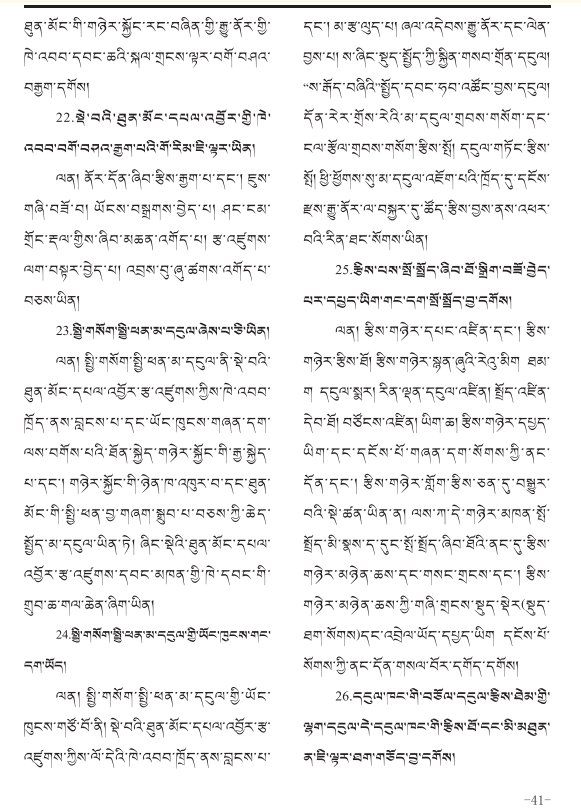 ཐུན་མོང་གི་གཉེར་སྐྱོང་རང་བཞིན་གྱི་རྒྱུ་ནོར་གྱི་
ཁེ་འབབ་དབང་ཆའི་སྐལ་གྲངས་ལྟར་བགོ་བཤའ་
བརྒྱག་དགོས།
22.སྡེ་བའི་ཐུན་མོང་དཔལ་འབྱོར་གྱི་ཁེ་
འབབ་བགོ་བཤའ་རྒྱག་པའི་གོ་རིམ་ཇི་ལྟར་ཡིན།
ལན། ནོར་དོན་ཞིབ་རྩིས་རྒྱག་པ་དང་། ཇུས་
གཞི་བཟོ་བ། ཡོངས་བསྒྲགས་བྱེད་པ། ཤང་ངམ་
གྲོང་རྡལ་གྱིས་ཞིབ་མཆན་འགོད་པ། རྩ་འཛུགས་
ལག་བསྟར་བྱེད་པ། འབྲས་བུ་ཞུ་ཚགས་འགོད་པ་
བཅས་ཡིན།
23.སྤྱི་གསོག་སྤྱི་ཕན་མ་དངུལ་ཞེས་པ་ཅི་ཡིན།
ལན། སྤྱི་གསོག་སྤྱི་ཕན་མ་དངུལ་ནི་སྡེ་བའི་
ཐུན་མོང་དཔལ་འབྱོར་རྩ་འཛུགས་ཀྱིས་ཁེ་འབབ་
ཁྲོད་ནས་བླངས་པ་དང་ཡོང་ཁུངས་གཞན་དག་
ལས་བགོས་པའི་ཐོན་སྐྱེད་གཉེར་སྐྱོང་གི་རྒྱ་སྐྱེད་
པ་དང་། གཉེར་སྐྱོང་གི་ཉེན་ཁ་འཁུར་བ་དང་ཐུན་
མོང་གི་སྤྱི་ཕན་བྱ་གཞག་སྒྲུབ་པ་བཅས་ཀྱི་ཆེད་
སྤྱོད་མ་དངུལ་ཡིན་ཏེ། ཞིང་སྡེའི་ཐུན་མོང་དཔལ་
འབྱོར་རྩ་འཛུགས་དབང་མཁན་གྱི་ཁེ་དབང་གི་
གྲུབ་ཆ་གལ་ཆེན་ཞིག་ཡིན།
24.སྤྱི་གསོག་སྤྱི་ཕན་མ་དངུལ་གྱི་ཡོང་ཁུངས་གང་
དག་ཡོད།
ལན། སྤྱི་གསོག་སྤྱི་ཕན་མ་དངུལ་གྱི་ཡོང་
ཁུངས་གཙོ་བོ་ནི། སྡེ་བའི་ཐུན་མོང་དཔལ་འབྱོར་རྩ་
འཛུགས་ཀྱིས་ལོ་དེའི་ཁེ་འབབ་ཁྲོད་ནས་བླངས་པ་
དང་། མ་རྩ་ལུད་པ། ཞལ་འདེབས་རྒྱུ་ནོར་དང་ལེན་
བྱས་པ། ས་ཞིང་སྡུད་སྤྱོད་ཀྱི་སྐྱིན་གསབ་གྲོན་དངུལ།
“ས་རྒོད་བཞིའི”སྤྱོད་དབང་ཧབ་འཚོང་བྱས་དངུལ།
དོན་རེར་གྲོས་རེའི་མ་དངུལ་གྲབས་གསོག་དང་
ངལ་རྩོལ་གྲབས་གསོག་རྩིས་སྤྲོ། དངུལ་གཏོང་རྩིས་
སྤྲོ། ཕྱི་ཕྱོགས་སུ་མ་དངུལ་འཇོག་པའི་ཁྲོད་དུ་དངོས་
རྫས་རྒྱུ་ནོར་ལ་བསྐྱར་དུ་ཚོད་རྩིས་བྱས་ནས་འཕར་
བའི་རིན་ཐང་སོགས་ཡིན།
25.རྩིས་པས་སྤྲོ་སྤྲོད་ཞིབ་ཐོ་སྒྲིག་བཟོ་བྱེད་
པར་དཔྱད་ཡིག་གང་དག་སྤྲོ་སྤྲོད་བྱ་དགོས།
ལན། རྩིས་གཉེར་དཔང་འཛིན་དང་། རྩིས་
གཉེར་རྩིས་ཐོ། རྩིས་གཉེར་སྙན་ཞུའི་རེའུ་མིག ཐམ་
ག དངུལ་སྨར། རིན་ལྡན་དངུལ་འཛིན། སྤྲོད་འཛིན་
དེབ་ཐོ། བཙོངས་འཛིན། ཡིག་ཆ། རྩིས་གཉེར་དཔྱད་
ཡིག་དང་དངོས་པོ་གཞན་དག་སོགས་ཀྱི་ནང་
དོན་དང་། རྩིས་གཉེར་གློག་རྩིས་ཅན་དུ་བསྒྱུར་
བའི་སྡེ་ཚན་ཡིན་ན། ལས་ཀ་དེ་གཉེར་མཁན་སྤྲོ་
སྤྲོད་མི་སྣས་ད་དུང་སྤྲོ་སྤྲོད་ཞིབ་ཐོའི་ནང་དུ་རྩིས་
གཉེར་མཉེན་ཆས་དང་གསང་གྲངས་དང་། རྩིས་
གཉེར་མཉེན་ཆས་ཀྱི་གཞི་གྲངས་སྡུད་སྡེར(སྡུད་
ཐག་སོགས)དང་འབྲེལ་ཡོད་དཔྱད་ཡིག དངོས་པོ་
སོགས་ཀྱི་ནང་དོན་གསལ་བོར་དགོད་དགོས།
26.དངུལ་ཁང་གི་བཅོལ་དངུལ་རྩིས་ཐེམ་གྱི་
ལྷག་དངུལ་དེ་དངུལ་ཁང་གི་རྩིས་ཐོ་དང་མི་མཐུན་
ན་ཇི་ལྟར་ཐག་གཅོད་བྱ་དགོས།
-41-